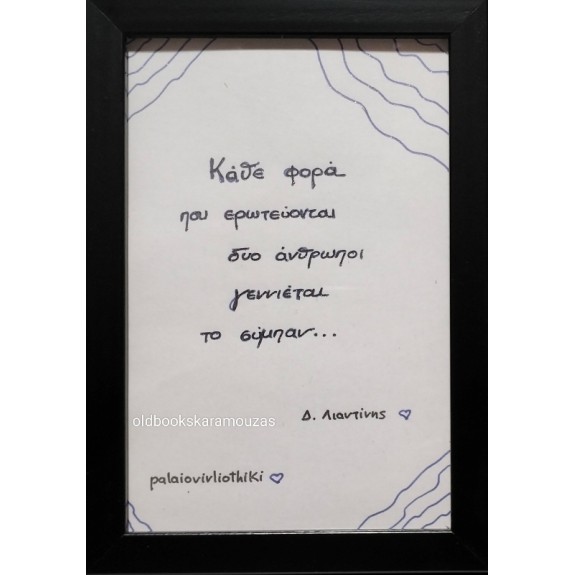 Κάθε φορά
που ερωτεύονται
δυο άνθρωποι
γεννιέται
το σύμπαν...
Δ. Λιαντίνης
oldbookskaramouzas
palaiovivliothiki